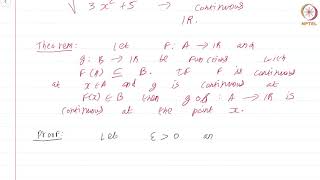 √3x²+5 → continuous
IR.
NPTEL
Theorem: Let F: A → IR and
g: B → IR be functions with
F(A) ⊆ B. If F is continuous
at x ∈ A and g is continuous at
F(x) ∈ B then g∘F: A → IR is
continuous at the point x.
Proof: Let ε > 0 an